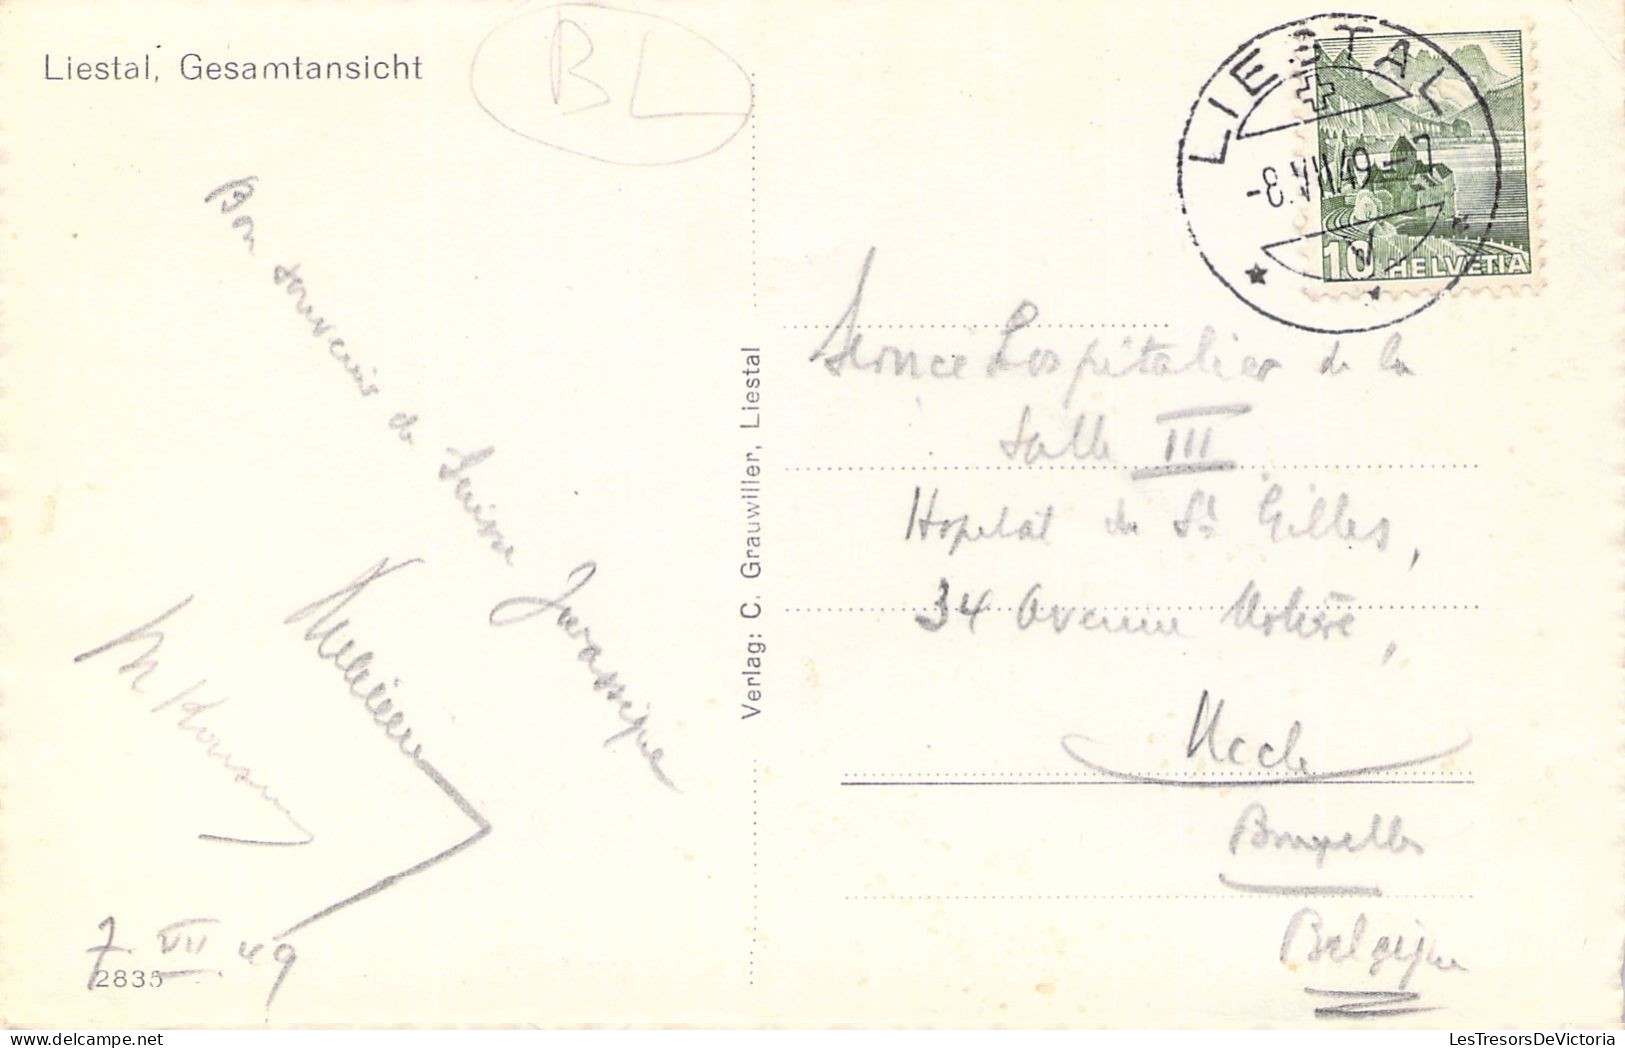 Liestal, Gesamtansicht
BL
Bon souvenir de Suisse Jurassique
7 VII 49
2835
Verlag: C. Grauwiller, Liestal
LIESTAL
-8.VII.49-7
10 HELVETIA
Service Hospitalier de la
Salle III
Hopital de St Gilles,
34 Avenue Molière,
Uccle
Bruxelles
Belgique
LesTresorsDeVictoria